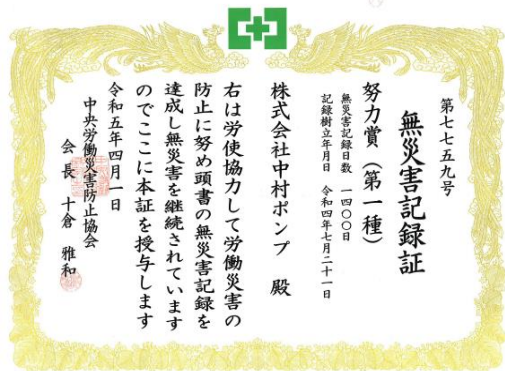 第七七五九号
無災害記録証
努力賞（第一種）
無災害記録日数 一四〇〇日
記録樹立年月日 令和四年七月二十一日
株式会社中村ポンプ 殿
右は労使協力して労働災害の
防止に努め頭書の無災害記録を
達成し無災害を継続されています
のでここに本証を授与します
令和五年四月一日
中央労働災害防止協会
会長 十倉 雅和